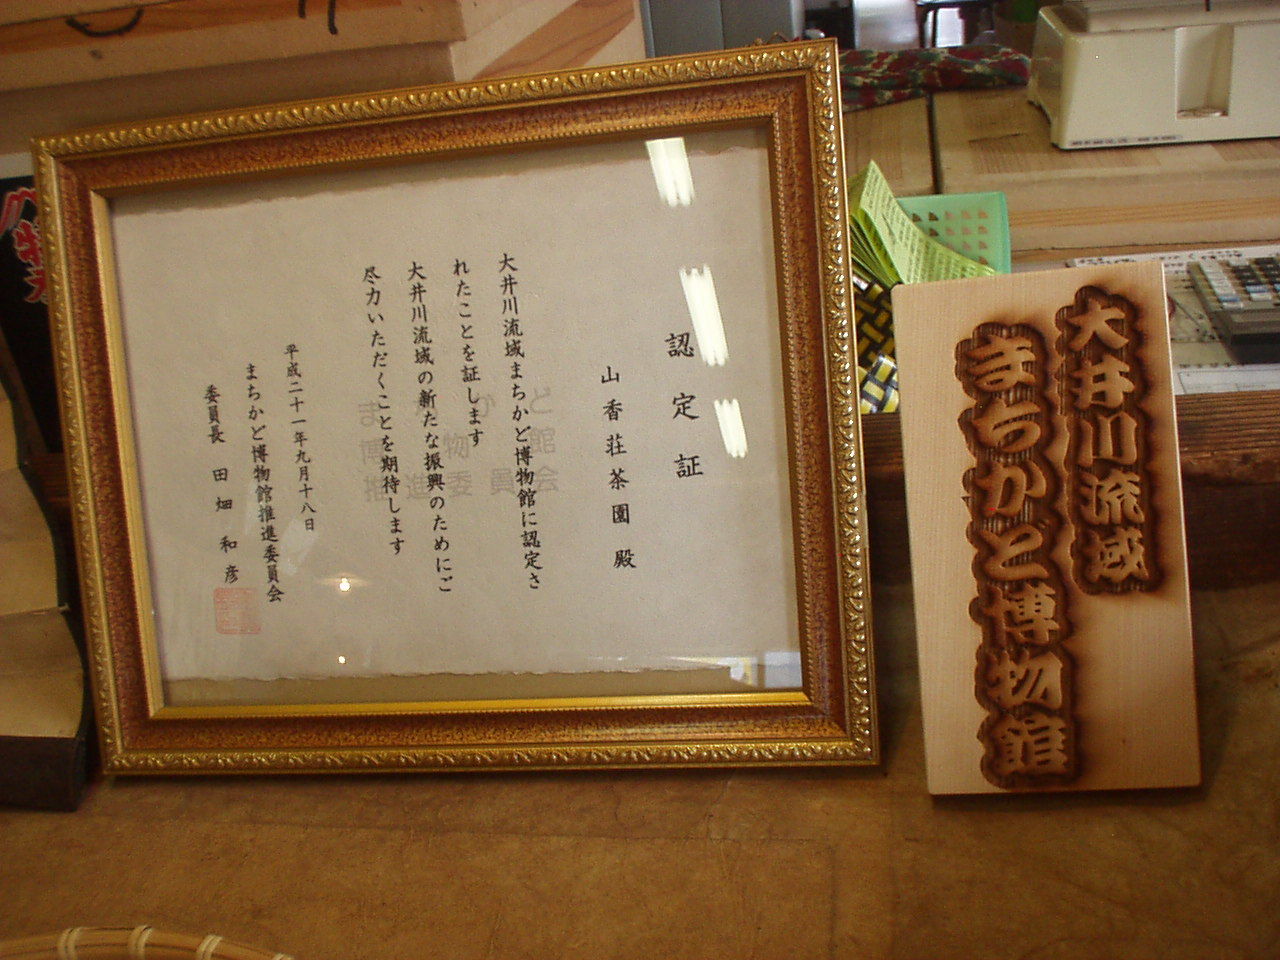 認定証
山香荘茶園 殿
大井川流域まちかど博物館に認定さ
れたことを証します
大井川流域の新たな振興のためにご
尽力いただくことを期待します
平成二十一年九月十八日
まちかど博物館推進委員会
委員長 田畑和彦
まちかど
博物館
推進委員会
大井川流域
まちかど博物館